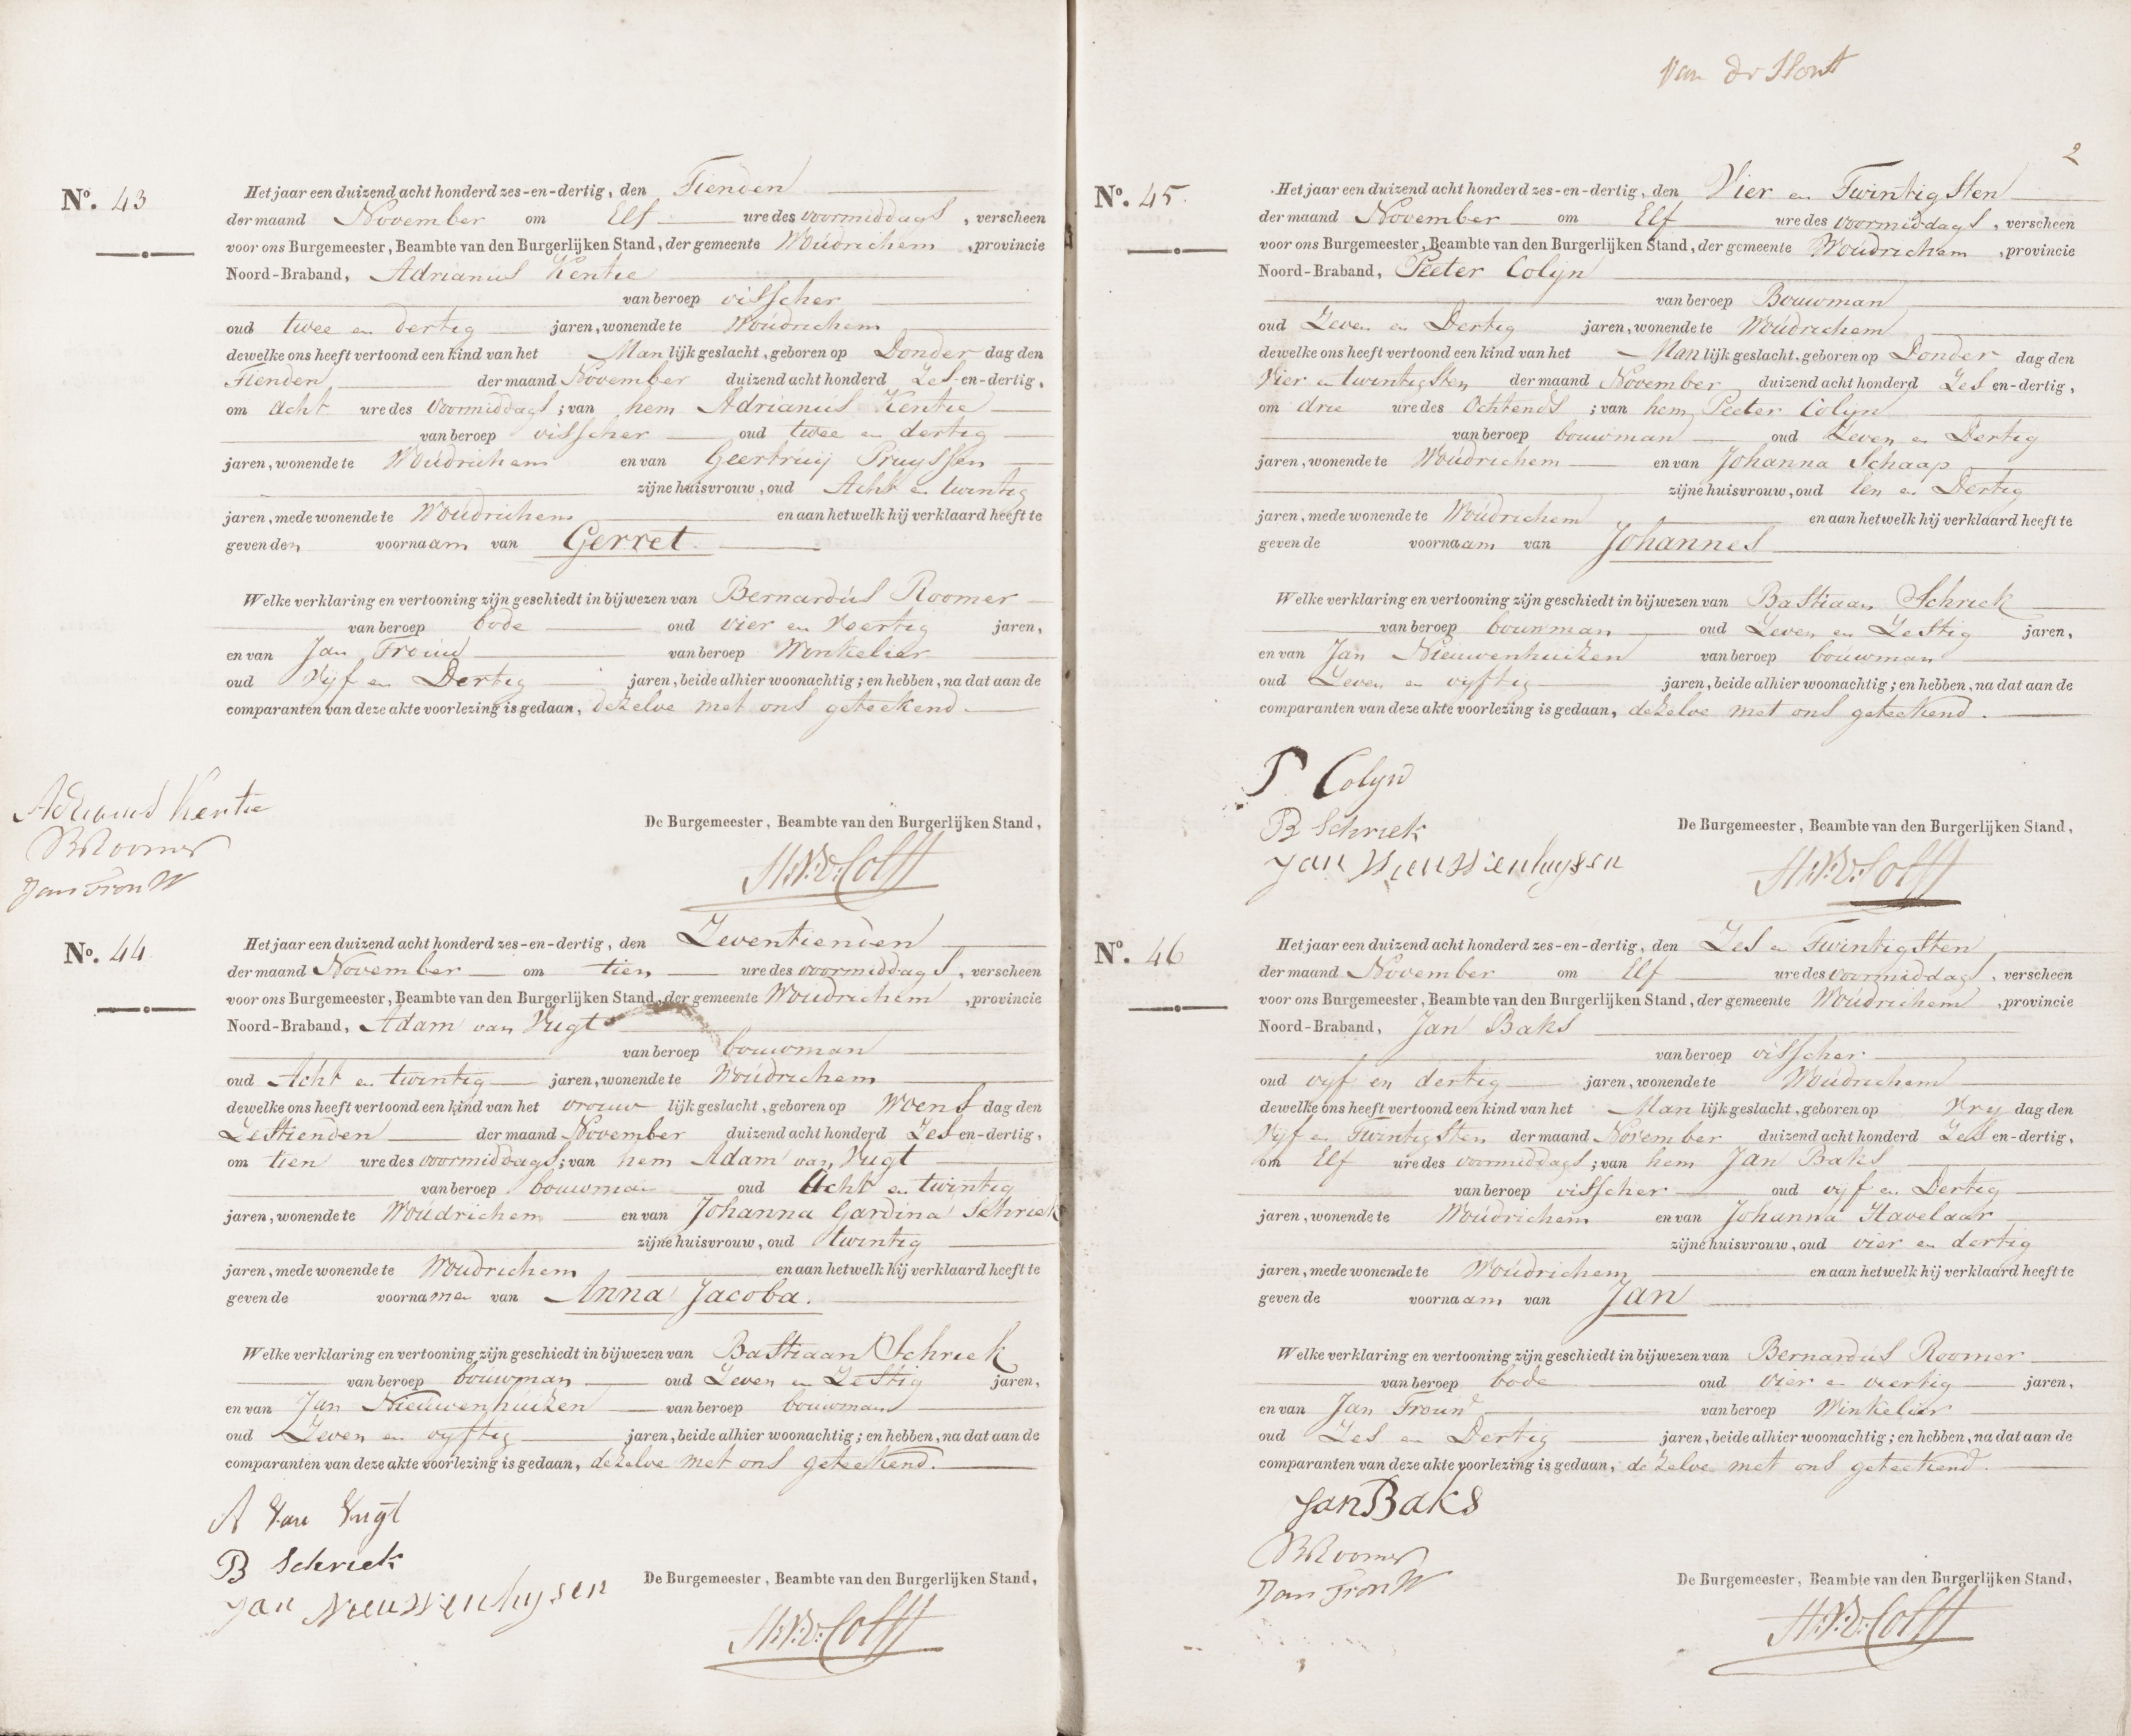 N.º 43
Het jaar een duizend acht honderd zes-en-dertig, den Tienden
der maand November om Elf ure des voormiddags, verscheen
voor ons Burgemeester, Beambte van den Burgerlijken Stand, der gemeente Woúdrichem, provincie
Noord-Braband, Adrianús Kentie
van beroep visscher
oud twee en dertig jaren, wonende te Woúdrichem
dewelke ons heeft vertoond een kind van het Manlijk geslacht, geboren op Donderdag den
Tienden der maand November duizend acht honderd Zes-en-dertig,
om acht ure des voormiddags; van hem Adrianús Kentie
van beroep visscher oud twee en dertig
jaren, wonende te Woúdrichem en van Geertruij Pruyssen
zijne huisvrouw, oud Acht en twintig
jaren, mede wonende te Woúdrichem en aan hetwelk hij verklaard heeft te
geven den voornaam van Gerret.
Welke verklaring en vertooning zijn geschiedt in bijwezen van Bernardús Roomer
van beroep bode oud vier en Veertig jaren,
en van Jan Frouw van beroep Winkelier
oud Vijf en Dertig jaren, beide alhier woonachtig; en hebben, na dat aan de
comparanten van deze akte voorlezing is gedaan, dezelve met ons geteekend.
Adrianus Kentie
B Roomer
Jan Frouw
De Burgemeester, Beambte van den Burgerlijken Stand,
N.º 44
Het jaar een duizend acht honderd zes-en-dertig, den Zeventienden
der maand November om tien ure des voormiddags, verscheen
voor ons Burgemeester, Beambte van den Burgerlijken Stand, der gemeente Woúdrichem, provincie
Noord-Braband, Adam van Vugt
van beroep bouwman
oud Acht en twintig jaren, wonende te Woúdrichem
dewelke ons heeft vertoond een kind van het vrouwlijk geslacht, geboren op Woensdag den
Zestienden der maand November duizend acht honderd Zes en-dertig,
om tien ure des voormiddags; van hem Adam van Vugt
van beroep bouwman oud Acht en twintig
jaren, wonende te Woúdrichem en van Johanna Gardina Schriek
zijne huisvrouw, oud twintig
jaren, mede wonende te Woudrichem en aan hetwelk hij verklaard heeft te
geven de voornamen van Anna Jacoba.
Welke verklaring en vertooning zijn geschiedt in bijwezen van Bastiaan Schriek
van beroep bouwman oud Zeven en Zestig jaren,
en van Jan Nieúwenhúizen van beroep bouwman
oud Zeven en vyftig jaren, beide alhier woonachtig; en hebben, na dat aan de
comparanten van deze akte voorlezing is gedaan, dezelve met ons geteekend.
A Van Vugt
B Schriek
Jan Nieuwenhuysen
De Burgemeester, Beambte van den Burgerlijken Stand,
2
N.º 45.
Het jaar een duizend acht honderd zes-en-dertig, den Vier en Twintigsten
der maand November om Elf ure des voormiddags, verscheen
voor ons Burgemeester, Beambte van den Burgerlijken Stand, der gemeente Woúdrichem, provincie
Noord-Braband, Peeter Colyn
van beroep Bouwman
oud Zeven en Dertig jaren, wonende te Woúdrichem
dewelke ons heeft vertoond een kind van het Manlijk geslacht, geboren op Donder dag den
Vier en twintigsten der maand November duizend acht honderd Zes en-dertig,
om drie ure des Ochtends; van hem Peeter Colyn
van beroep bouwman oud Zeven en Dertig
jaren, wonende te Woúdrichem en van Johanna Schaap
zijne huisvrouw, oud Een en Dertig
jaren, mede wonende te Woúdrichem en aan hetwelk hij verklaard heeft te
geven de voornaam van Johannes
Welke verklaring en vertooning zijn geschiedt in bijwezen van Bastiaan Schriek
van beroep bouwman oud Zeven en Zestig jaren,
en van Jan Nieuwenhuizen van beroep bouwman
oud Zeven en vyftig jaren, beide alhier woonachtig; en hebben, na dat aan de
comparanten van deze akte voorlezing is gedaan, dezelve met ons geteekend.
P Colyn
B Schriek
Jan Nieuwenhuysen
De Burgemeester, Beambte van den Burgerlijken Stand,
N.º 46
Het jaar een duizend acht honderd zes-en-dertig, den Zes en Twintigsten
der maand November om Elf ure des voormiddags, verscheen
voor ons Burgemeester, Beambte van den Burgerlijken Stand, der gemeente Woúdrichem, provincie
Noord-Braband, Jan Baks
van beroep visscher
oud vyf en dertig jaren, wonende te Woúdrichem
dewelke ons heeft vertoond een kind van het Manlijk geslacht, geboren op Vry dag den
Vijf en Twintigsten der maand November duizend acht honderd Zes en-dertig,
om Elf ure des voormiddags; van hem Jan Baks
van beroep visscher oud vyf en Dertig
jaren, wonende te Woúdrichem en van Johanna Havelaar
zijne huisvrouw, oud vier en dertig
jaren, mede wonende te Woúdrichem en aan hetwelk hij verklaard heeft te
geven de voornaam van Jan
Welke verklaring en vertooning zijn geschiedt in bijwezen van Bernardús Roomer
van beroep bode oud vier en veertig jaren,
en van Jan Frouw van beroep Winkelier
oud Zes en Dertig jaren, beide alhier woonachtig; en hebben, na dat aan de
comparanten van deze akte voorlezing is gedaan, dezelve met ons geteekend.
Jan Baks
B Roomer
Jan Frouw
De Burgemeester, Beambte van den Burgerlijken Stand,